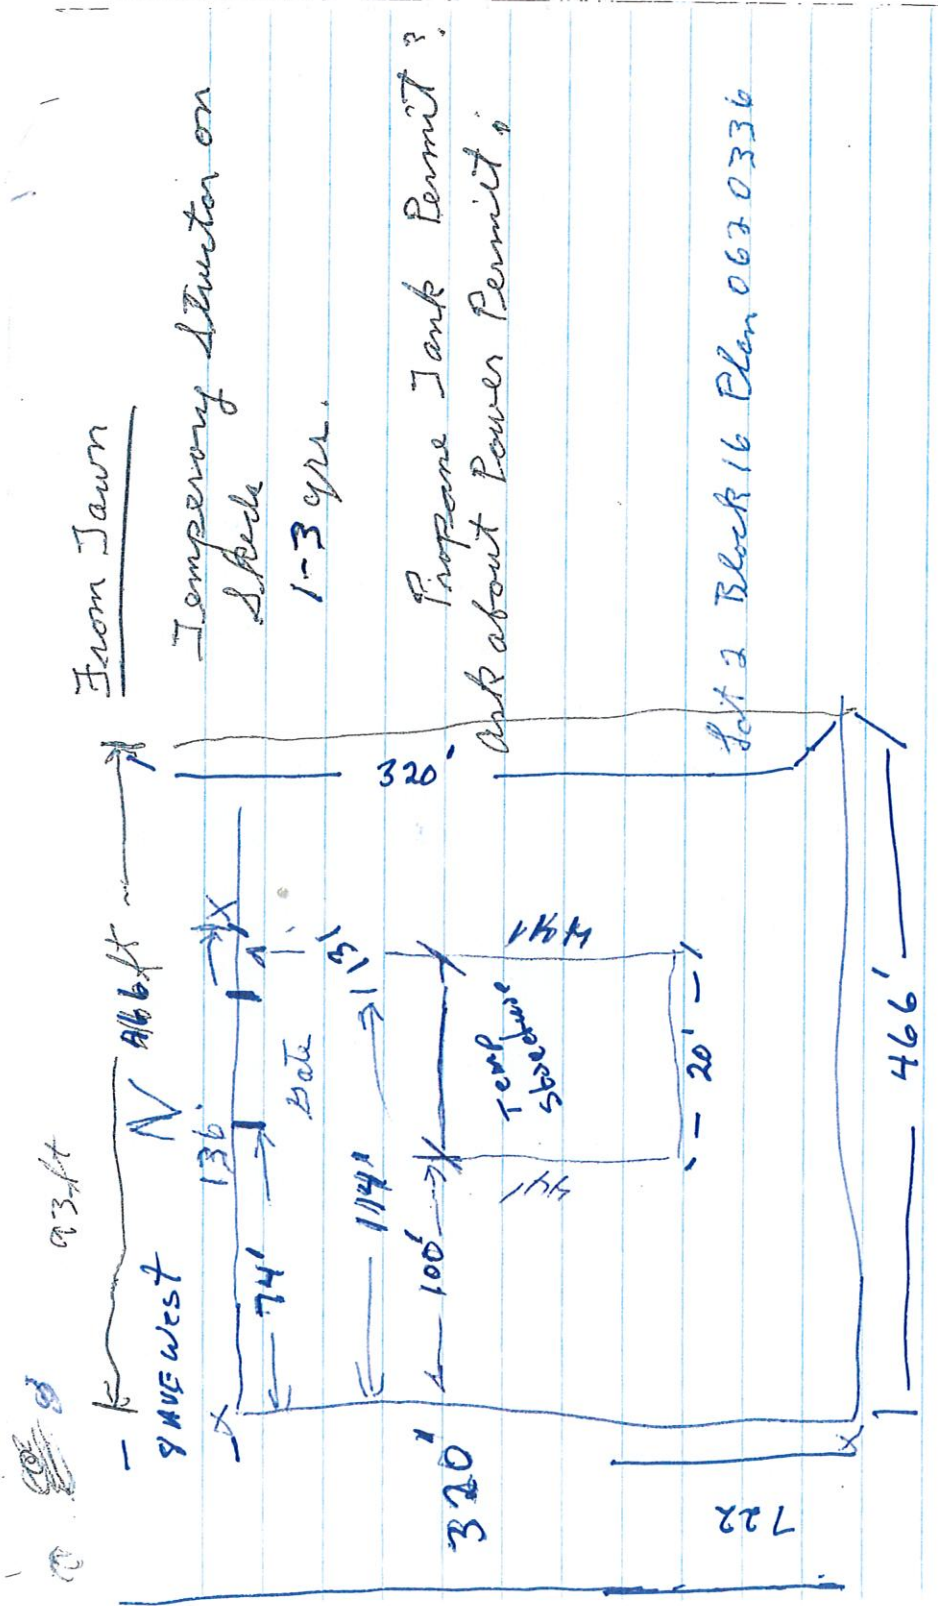 From Town
Temperory Structor on
Skeds
1-3 yrs.
Propane Tank Permit ?
Ask about Power Permit ;
Lot 2 Block 16 Plan 062 0336
93 ft
466 ft
N
9 AVE West
136'
74'
Gate
13'
114'
100'
320'
320'
44'
Temp
structure
44'
20'
466'
722